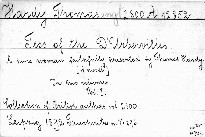 Hardy Thomas 2800 A 42352
Tess of the D'Urbervilles
A pure woman faithfully presented by Thomas Hardy.
[A novel]
In two volumes
Vol. 1.
Collection of British authors vol 2800
Leipzig, 1892, Tauchnitz